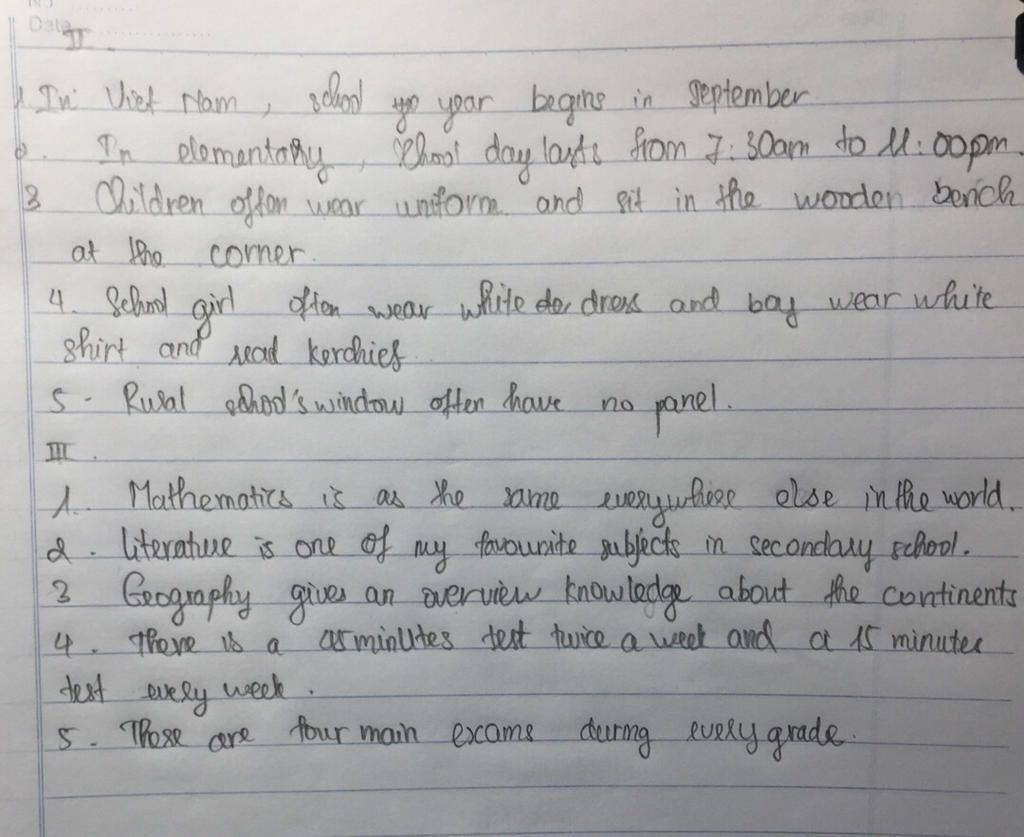 No
Date
II.
1. In Viet Nam, school ye year begins in September
2. In elementary, School day lasts from 7:30am to 11:00pm.
3 Children often wear uniform and sit in the wooden bench
at the corner.
4. School girl often wear white de dress and boy wear white
shirt and read kerchief
5 - Rural school's window often have no panel.
III.
1. Mathematics is as the same everywhere else in the world.
2. literature is one of my favourite subjects in secondary school.
3 Geography gives an overview knowledge about the continents
4. There is a 45 minutes test twice a week and a 15 minutes
test every week.
5 - These are four main exams during every grade.